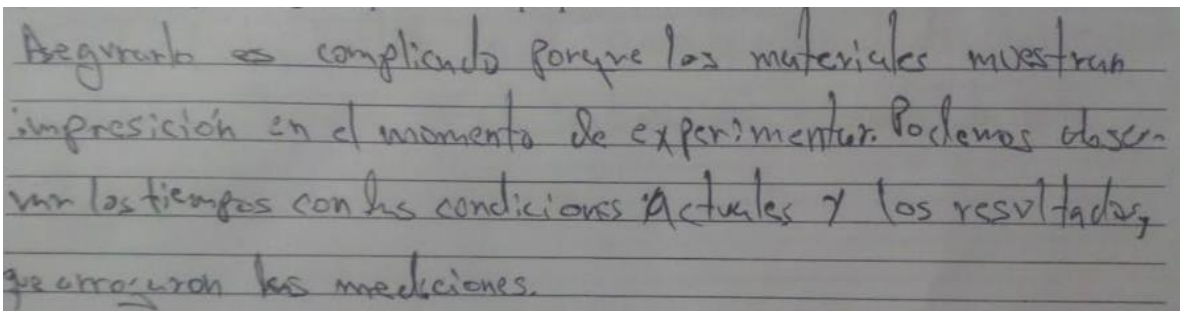 Asegurarlo es complicado porque los materiales muestran
impresición en el momento de experimentar. Podemos obser-
var los tiempos con las condiciones Actuales y los resultados,
que arrojaron las mediciones.